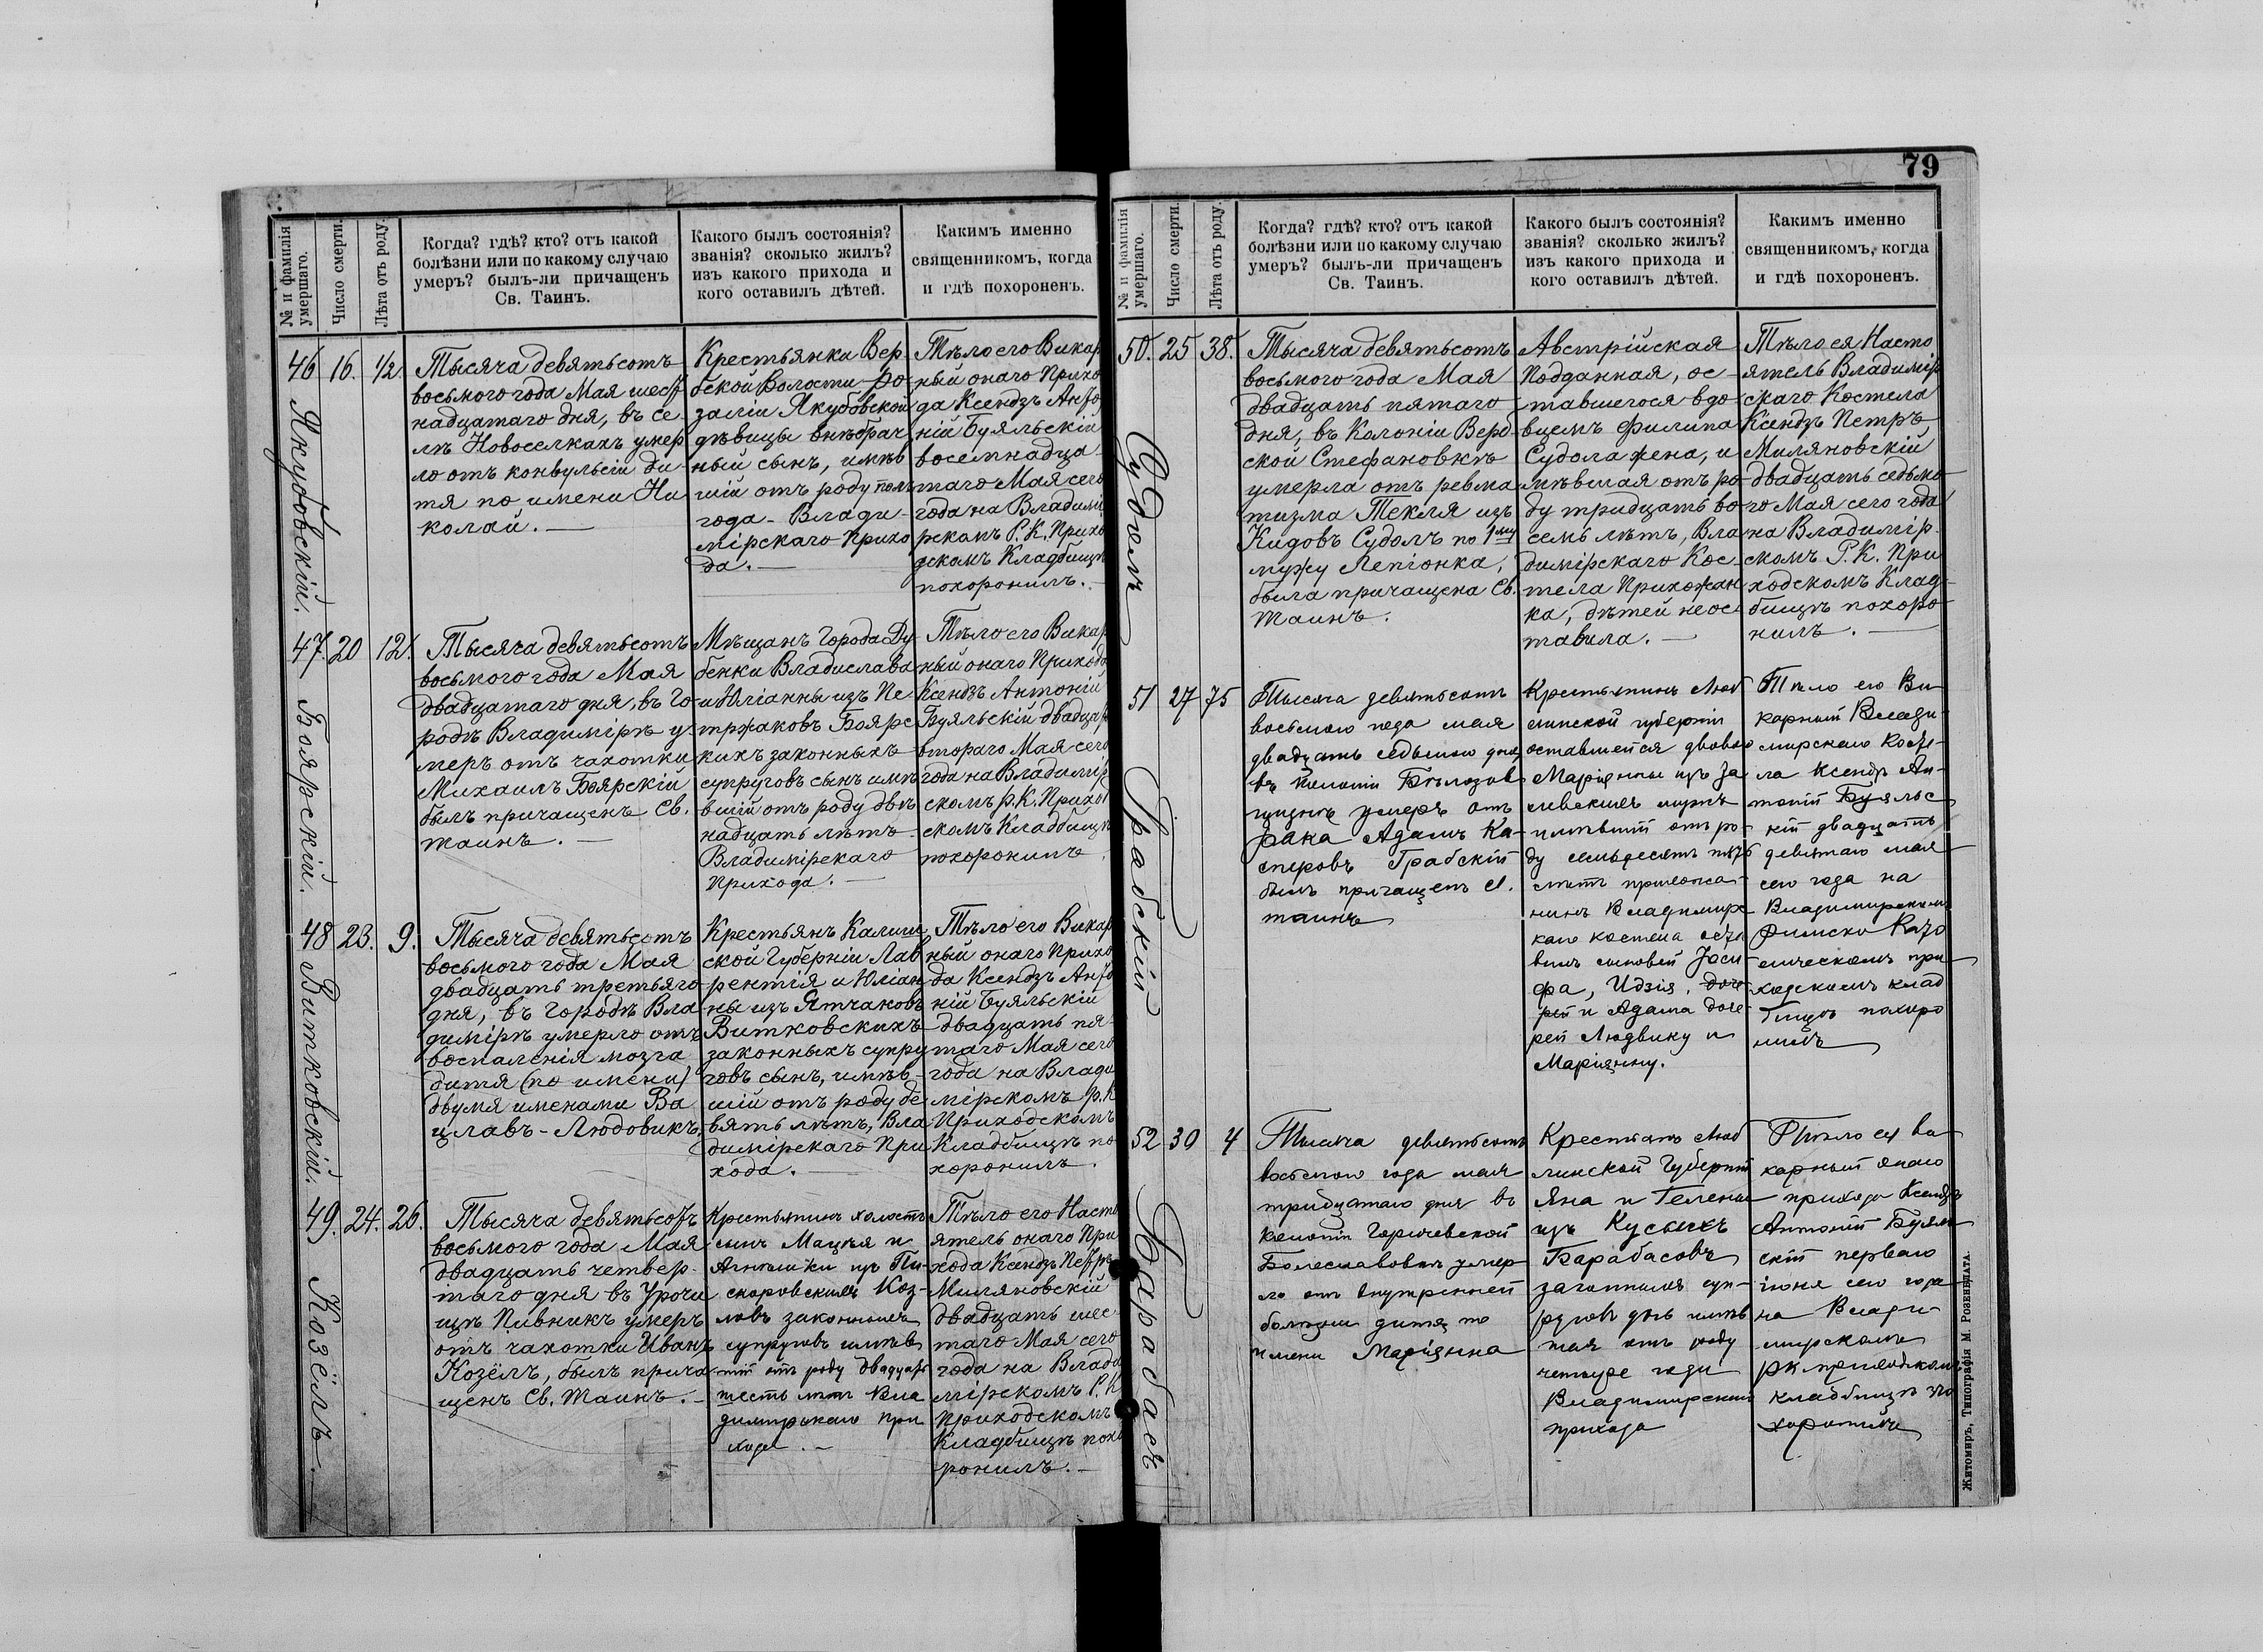 79
№ и фамилія
умершаго.
Число смерти.
Лѣта отъ роду.
Когда? гдѣ? кто? отъ какой
болѣзни или по какому случаю
умеръ? былъ-ли причащенъ
Св. Таинъ.
Какого былъ состоянія?
званія? сколько жилъ?
изъ какого прихода и
кого оставилъ дѣтей.
Какимъ именно
священникомъ, когда
и гдѣ похороненъ.
46
Якубовскій.
16.
1/2
Тысяча девятьсотъ
восьмого года Мая шест
надцатаго дня, въ се-
лѣ Новоселкахъ умер
ло отъ конвульсіи ди-
тя по имени Ни
колай.
Крестьянки Вер
бской Волости Ро
заліи Якубовской
дѣвицы внѣбрач
ный сынъ, имѣв
шій отъ роду пол
года - Влади-
мірскаго Прихо
да.
Тѣло его Викар
ный онаго Прихо
да Ксендзъ Анто
ній Буяльскій
восемнадца-
таго Мая сего
года на Владимі
рскомъ Р. К. Прихо
дскомъ Кладбищѣ
похоронилъ.
47.
Боярскій.
20
12.
Тысяча девятьсотъ
восьмого года Мая
двадцатаго дня, въ Го-
родѣ Владимірѣ у-
меръ отъ чахотки
Михаилъ Боярскій
былъ причащенъ Св.
Таинъ.
Мѣщанъ Города Ду-
бенки Владислава
и Юліанны изъ Пе-
тржаковъ Боярс
кихъ законныхъ
супруговъ сынъ имѣ
вшій отъ роду двѣ
надцать лѣтъ
Владимірскаго
Прихода.
Тѣло его Викар
ный онаго Прихода
Ксендзъ Антоній
Буяльскій двадцать
второго Мая сего
года на Владимір
скомъ Р. К. Приход
скомъ Кладбищѣ
похоронилъ
48
Витковскій.
23.
9.
Тысяча девятьсотъ
восьмого года Мая
двадцать третьяго
дня, въ Городѣ Вла
димірѣ умерло отъ
воспаленія мозга
дитя (по имени)
двумя именами Ва
цлавъ-Людовикъ.
Крестьянъ Калиш
ской Губерніи Лав
рентія и Юліан
ны изъ Ятчаковъ
Витковскихъ
законныхъ супру
говъ сынъ, имѣв-
шій отъ роду де
вять лѣтъ, Вла
димірскаго При
хода.
Тѣло его Викар
ный онаго Прихо
да Ксендзъ Анто
ній Буяльскій
двадцать пя-
таго Мая сего
года на Влади
мірскомъ Р. К
Приходскомъ
Кладбищѣ по
хоронилъ.
49.
Козёлъ.
24.
26.
Тысяча девятьсотъ
восьмого года Мая
двадцать четвер-
таго дня въ Урочи
щѣ Пивникъ умеръ
отъ чахотки Иванъ
Козёлъ, былъ прича
щенъ Св. Таинъ.
Крестьянинъ холостъ
сынъ Мацѣя и
Агнѣшки изъ Пи-
скоровскихъ Коз-
ловъ законныхъ
супруговъ имѣв
шій отъ роду двадцать
шесть лѣтъ Вла
димірскаго при
хода.
Тѣло его Насто
ятель онаго При
хода Ксендзъ Петръ
Миляновскій
двадцать шес-
таго Мая сего
года на Влади
мірскомъ Р. К
Приходскомъ
Кладбищѣ похо
ронилъ.
№ и фамилія
умершаго.
Число смерти.
Лѣта отъ роду.
Когда? гдѣ? кто? отъ какой
болѣзни или по какому случаю
умеръ? былъ-ли причащенъ
Св. Таинъ.
Какого былъ состоянія?
званія? сколько жилъ?
изъ какого прихода и
кого оставилъ дѣтей.
Какимъ именно
священникомъ, когда
и гдѣ похороненъ.
50.
Судолъ
25
38.
Тысяча девятьсотъ
восьмого года Мая
двадцать пятаго
дня, въ Колоніи Верб-
ской Стефановкѣ
умерла отъ ревма
тизма Текля изъ
Кидовъ Судолъ по 1му
мужу Лепіонка,
была причащена Св.
Таинъ.
Австрійская
Подданная, ос-
тавшегося вдо
вцемъ Филипа
Судола жена, и
мѣвшая отъ ро-
ду тридцать во
семь лѣтъ, Вла
димірскаго Кос-
тела Прихожан
ка, дѣтей не ос
тавила.
Тѣло ея Насто
ятель Владимір
скаго Костела
Ксендзъ Петръ
Миляновскій
двадцать седьмо
го Мая сего года
на Владимір-
скомъ Р. К. При
ходскомъ Клад-
бищѣ похоро-
нилъ.
51
Грабскій
27
75
Тысяча девятьсотъ
восьмого года мая
двадцать седьмого дня,
въ колоніи Бѣлозов
щизнѣ умеръ отъ
рака Адамъ Ка-
сперовъ Грабскій
былъ причащенъ Св.
таинъ
Крестьянинъ Люб
линской губерніи
оставшейся двовою
Маріянны изъ За
левскихъ мужъ
имѣвшій отъ ро-
ду семьдесятъ пять
лѣтъ прихожа
нинъ Владимирс
каго костела оста
вилъ сыновей Іоси
фа, Идзія, доче
рей и Адама доче
рей Людвику и
Маріянну.
Тѣло его Ви
карный Влади-
мирскаго Косте-
ла Ксендзъ Ан-
тоній Буяльс
кій двадцать
девятаго мая
сего года на
Владимирскомъ
Римско Като
лическомъ при
ходскомъ клад
бищѣ похоро
нилъ
52
Барабасъ
30
4
Тысяча девятьсотъ
восьмого года мая
тридцатаго дня въ
колоніи Горичевской
Болеславовкѣ умер
ло отъ внутренней
болѣзни дитя по
имени Маріянна
Крестьянъ Люб
линской Губерніи
Яна и Гелены
изъ Кусыкъ
Барабасовъ
законныхъ суп-
руговъ дочь имѣв
шая отъ роду
четыре года
Владимирскаго
прихода
Тѣло ея ви
карный онаго
прихода Ксендзъ
Антоній Буяль
скій перваго
іюня сего года
на Влади-
мирскомъ
РК приходскомъ
кладбищѣ по
хоронилъ
Житомиръ, Типографія М. Розенблата.